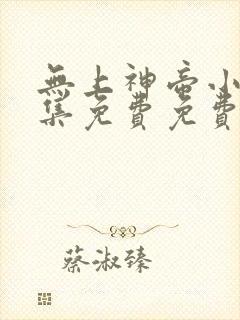 無上神帝小
集免費免費
蔡淑臻